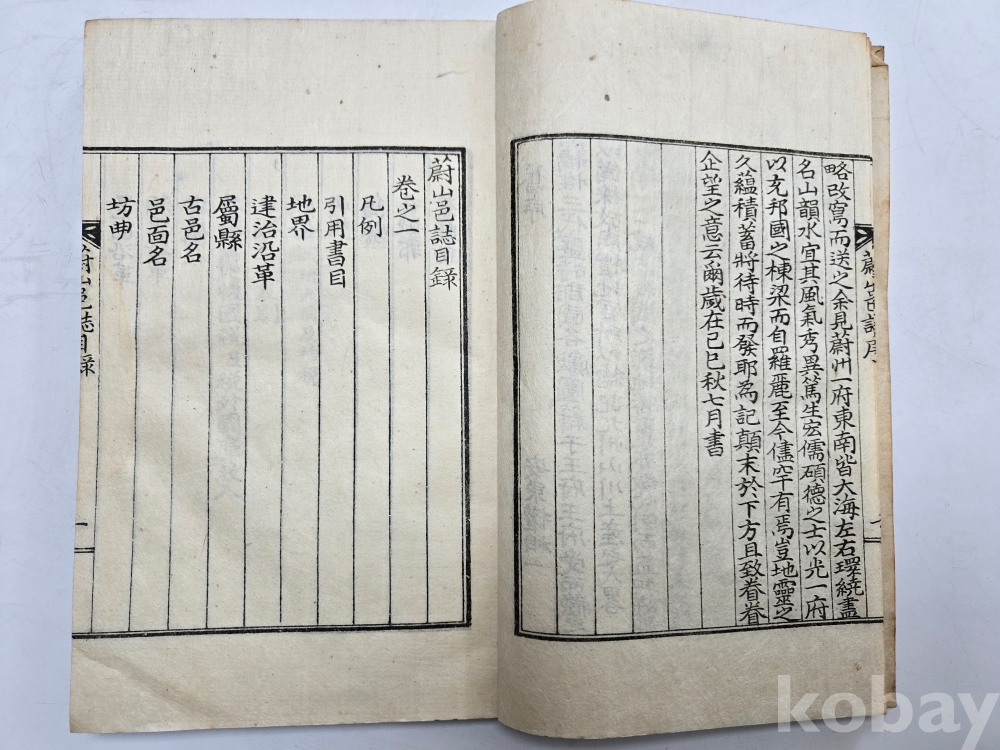 略改寫而送之余見蔚州一府東南皆大海左右環繞盡
名山韻水宜其風氣秀異篤生宏儒碩德之士以光一府
以充邦國之棟梁而自羅麗至今儘罕有焉豈地靈之
久蘊積蓄將待時而發耶為記顛末於下方且致眷眷
企望之意云爾歲在己巳秋七月書
蔚山邑誌目錄
卷之一
凡例
引用書目
地界
建治沿革
屬縣
古邑名
邑面名
坊曲
蔚山邑誌目錄
一
kobay